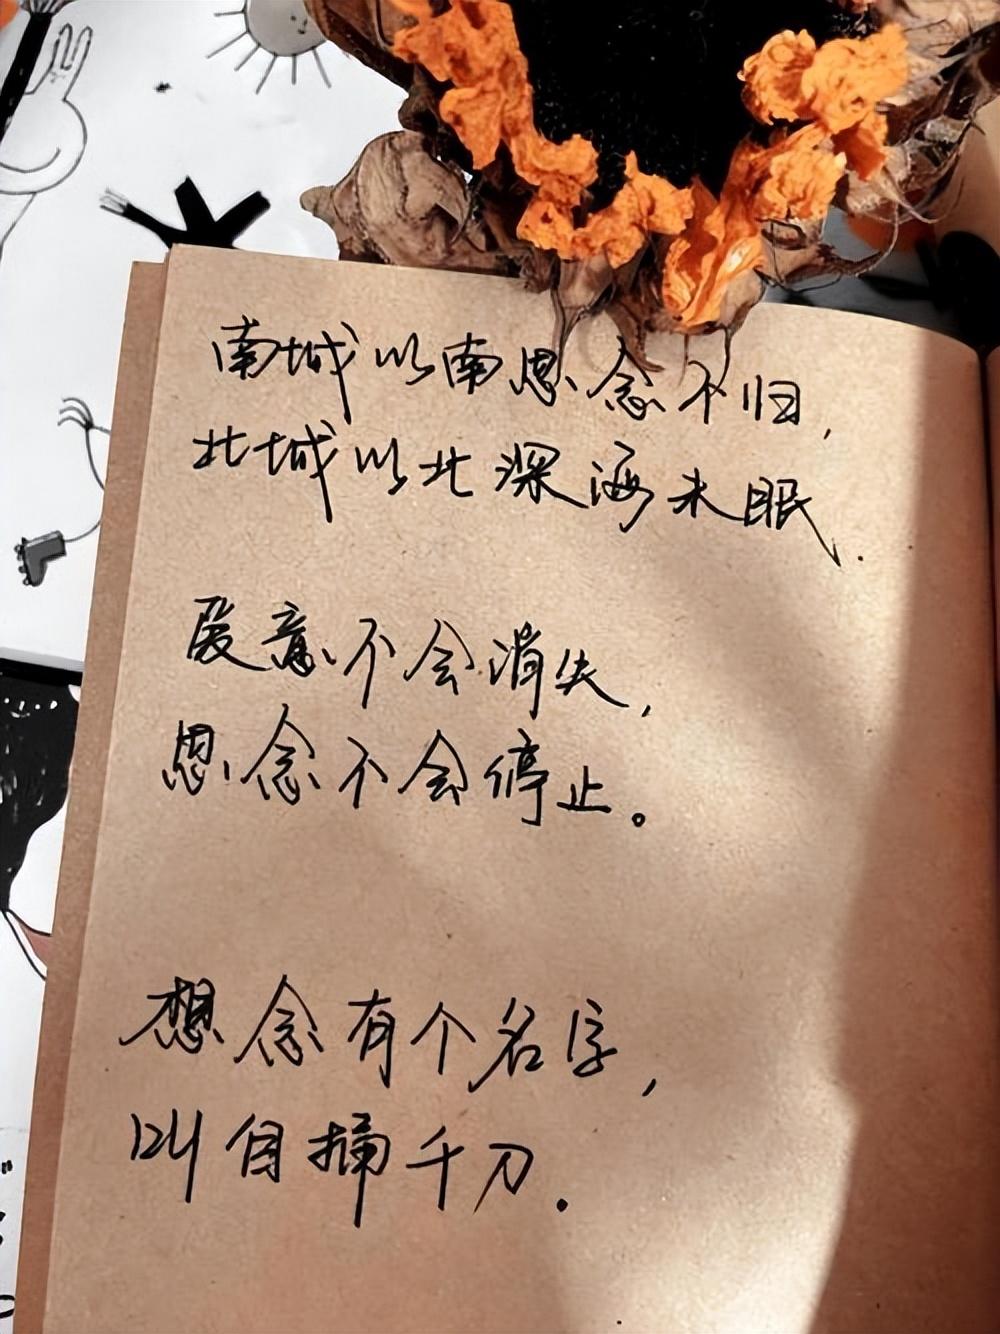 南城以南思念不归,
北城以北深海未眠.
爱意不会消失,
思念不会停止。
想念有个名字,
叫自捅千刀.